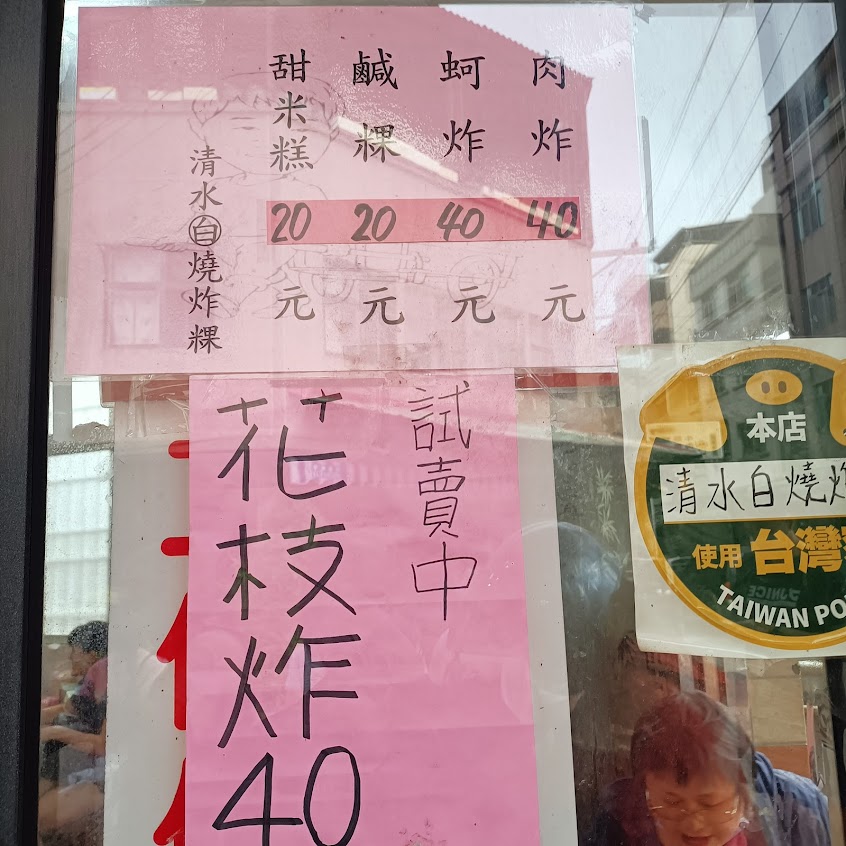 肉炸40元
蚵炸40元
鹹粿20元
甜米糕20元
清水白燒炸粿
試賣中
花枝炸40
本店
清水白燒炸
使用台灣
TAIWAN